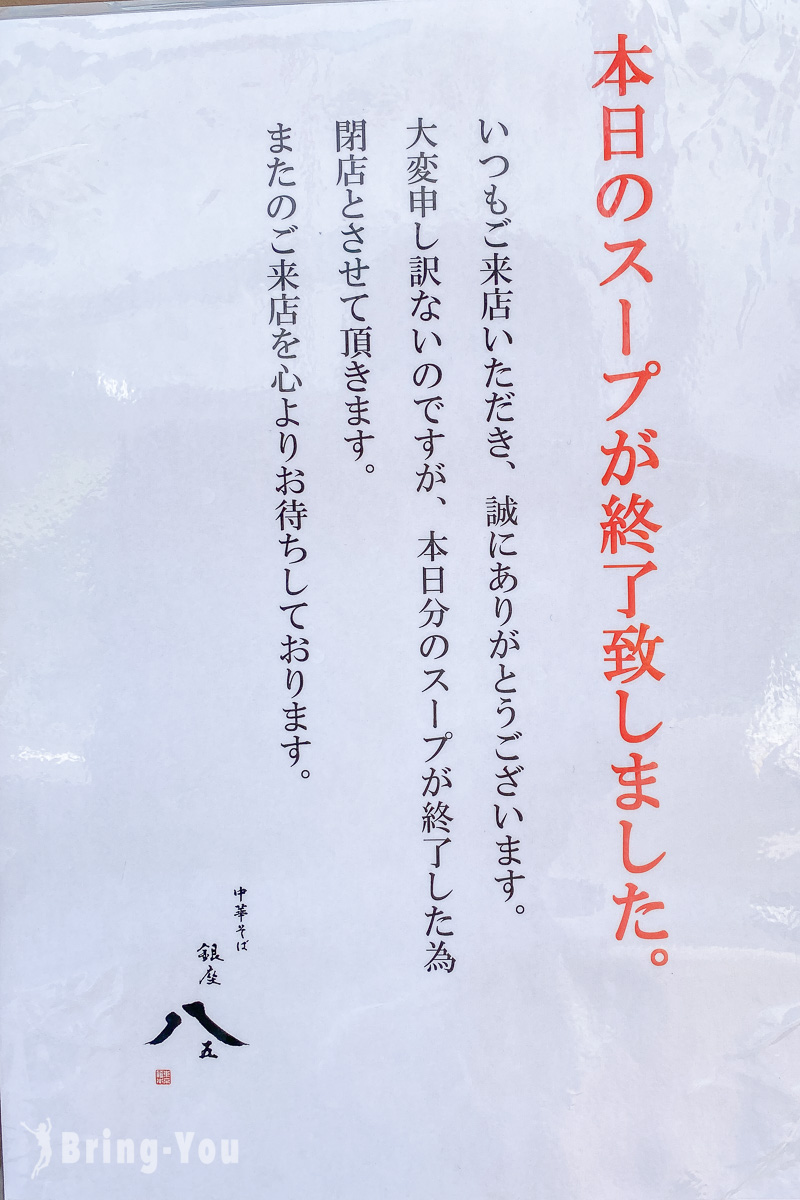 本日のスープが終了致しました。
いつもご来店いただき、誠にありがとうございます。
大変申し訳ないのですが、本日分のスープが終了した為
閉店とさせて頂きます。
またのご来店を心よりお待ちしております。
中華そば
銀座
八五
Bring-You